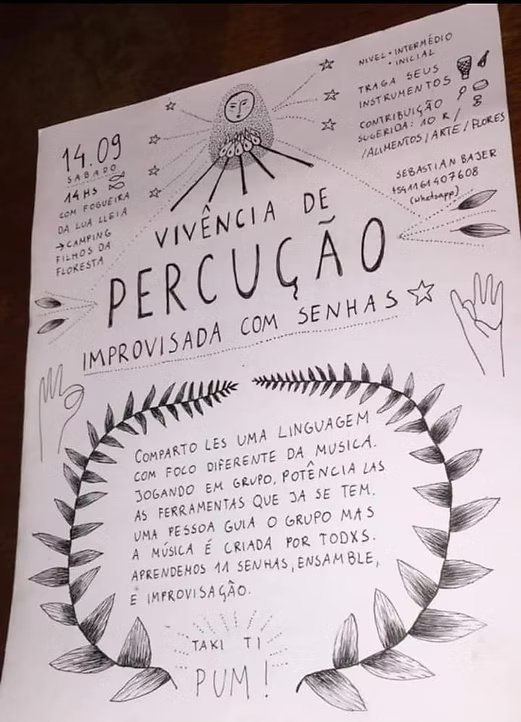 14.09
SABADO
14HS
COM FOGUEIRA
DA LUA LLEIA
→CAMPING
FILHOS DA
FLORESTA
NIVEL • INTERMÉDIO
• INICIAL
TRAGA SEUS
INSTRUMENTOS
CONTRIBUIÇÃO
SUGERIDA: 10 R/
/ALIMENTOS/ARTE/FLORES
SEBASTIAN BAJER
+541161407608
(whatsapp)
VIVÊNCIA DE
PERCUÇÃO
IMPROVISADA COM SENHAS
COMPARTO LES UMA LINGUAGEM
COM FOCO DIFERENTE DA MUSICA.
JOGANDO EM GRUPO, POTÊNCIA LAS
AS FERRAMENTAS QUE JA SE TEM.
UMA PESSOA GUIA O GRUPO MAS
A MÚSICA É CRIADA POR TODXS.
APRENDEMOS 11 SENHAS, ENSAMBLE,
E IMPROVISAÇÃO.
TAKI TI
PUM!